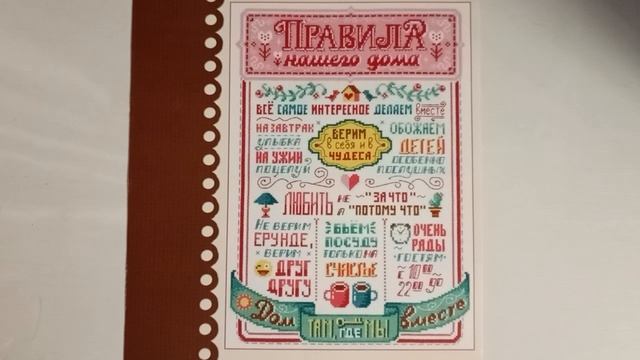 ПРАВИЛА
нашего дома
ВСЁ САМОЕ ИНТЕРЕСНОЕ ДЕЛАЕМ вместе
НА ЗАВТРАК
УЛЫБКА
НА УЖИН
ПОЦЕЛУЙ
ВЕРИМ
в себя и в
ЧУДЕСА
ОБОЖАЕМ
ДЕТЕЙ
ОСОБЕННО
ПОСЛУШНЫХ
ЛЮБИТЬ НЕ "ЗА ЧТО"
А "ПОТОМУ ЧТО"
НЕ ВЕРИМ
ЕРУНДЕ,
ВЕРИМ
ДРУГ
ДРУГУ
БЬЁМ
ПОСУДУ
ТОЛЬКО НА
СЧАСТЬЕ
ОЧЕНЬ
РАДЫ
ГОСТЯМ
С 10 00
ДО 22 00
Дом ТАМ ГДЕ МЫ вместе